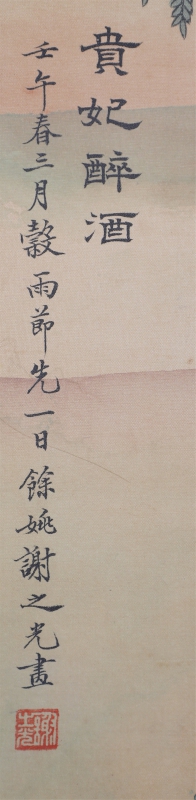 貴妃醉酒
壬午春三月穀雨節先一日餘姚謝之光畫
謝之光